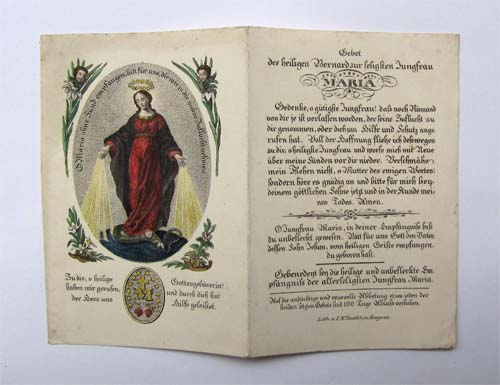 O Maria ohne Sünd empfangen, bitt für uns, die wir zu dir unsere Zuflucht nehmen!
Zu dir, o heilige Gottesgebärerin!
haben wir gerufen, und durch dich hat
der Herr uns Hilfe geleistet.
Gebet
des heiligen Bernard zur seligsten Jungfrau
MARIA
Gedenke, o gütigste Jungfrau! daß noch Niemand
von dir je ist verlassen worden, der seine Zuflucht zu
dir genommen, oder dich um Hilfe und Schutz ange-
rufen hat. Voll der Hoffnung fliehe ich deswegen
zu dir, o heiligste Jungfrau, und werfe mich mit Reue
über meine Sünden vor dir nieder. Verschmähe
mein Flehen nicht, o Mutter des ewigen Wortes;
sondern höre es gnädig an und bitte für mich bey
deinem göttlichen Sohne jetzt und in der Stunde mei-
nes Todes. Amen.
O Jungfrau Maria, in deiner Empfängniß bist
du unbefleckt gewesen. Bitt für uns Gott den Vater
dessen Sohn Jesum, vom heiligen Geiste empfangen,
du geboren hast.
Gebenedeyt sey die heilige und unbefleckte Em-
pfängniß der allerseligsten Jungfrau Maria.
Auf die andächtige und reuevolle Abbetung eines jeden der
beiden letzten Gebete sind 100 Tage Ablaß verliehen.